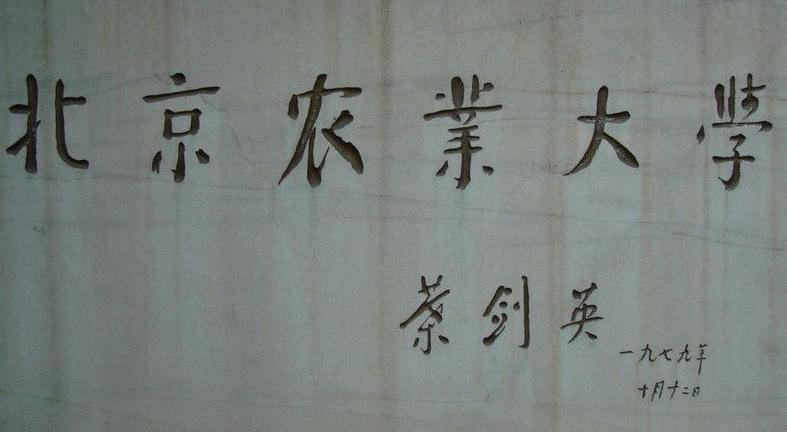 北京农業大学
葉剑英
一九七九年
十月十二日